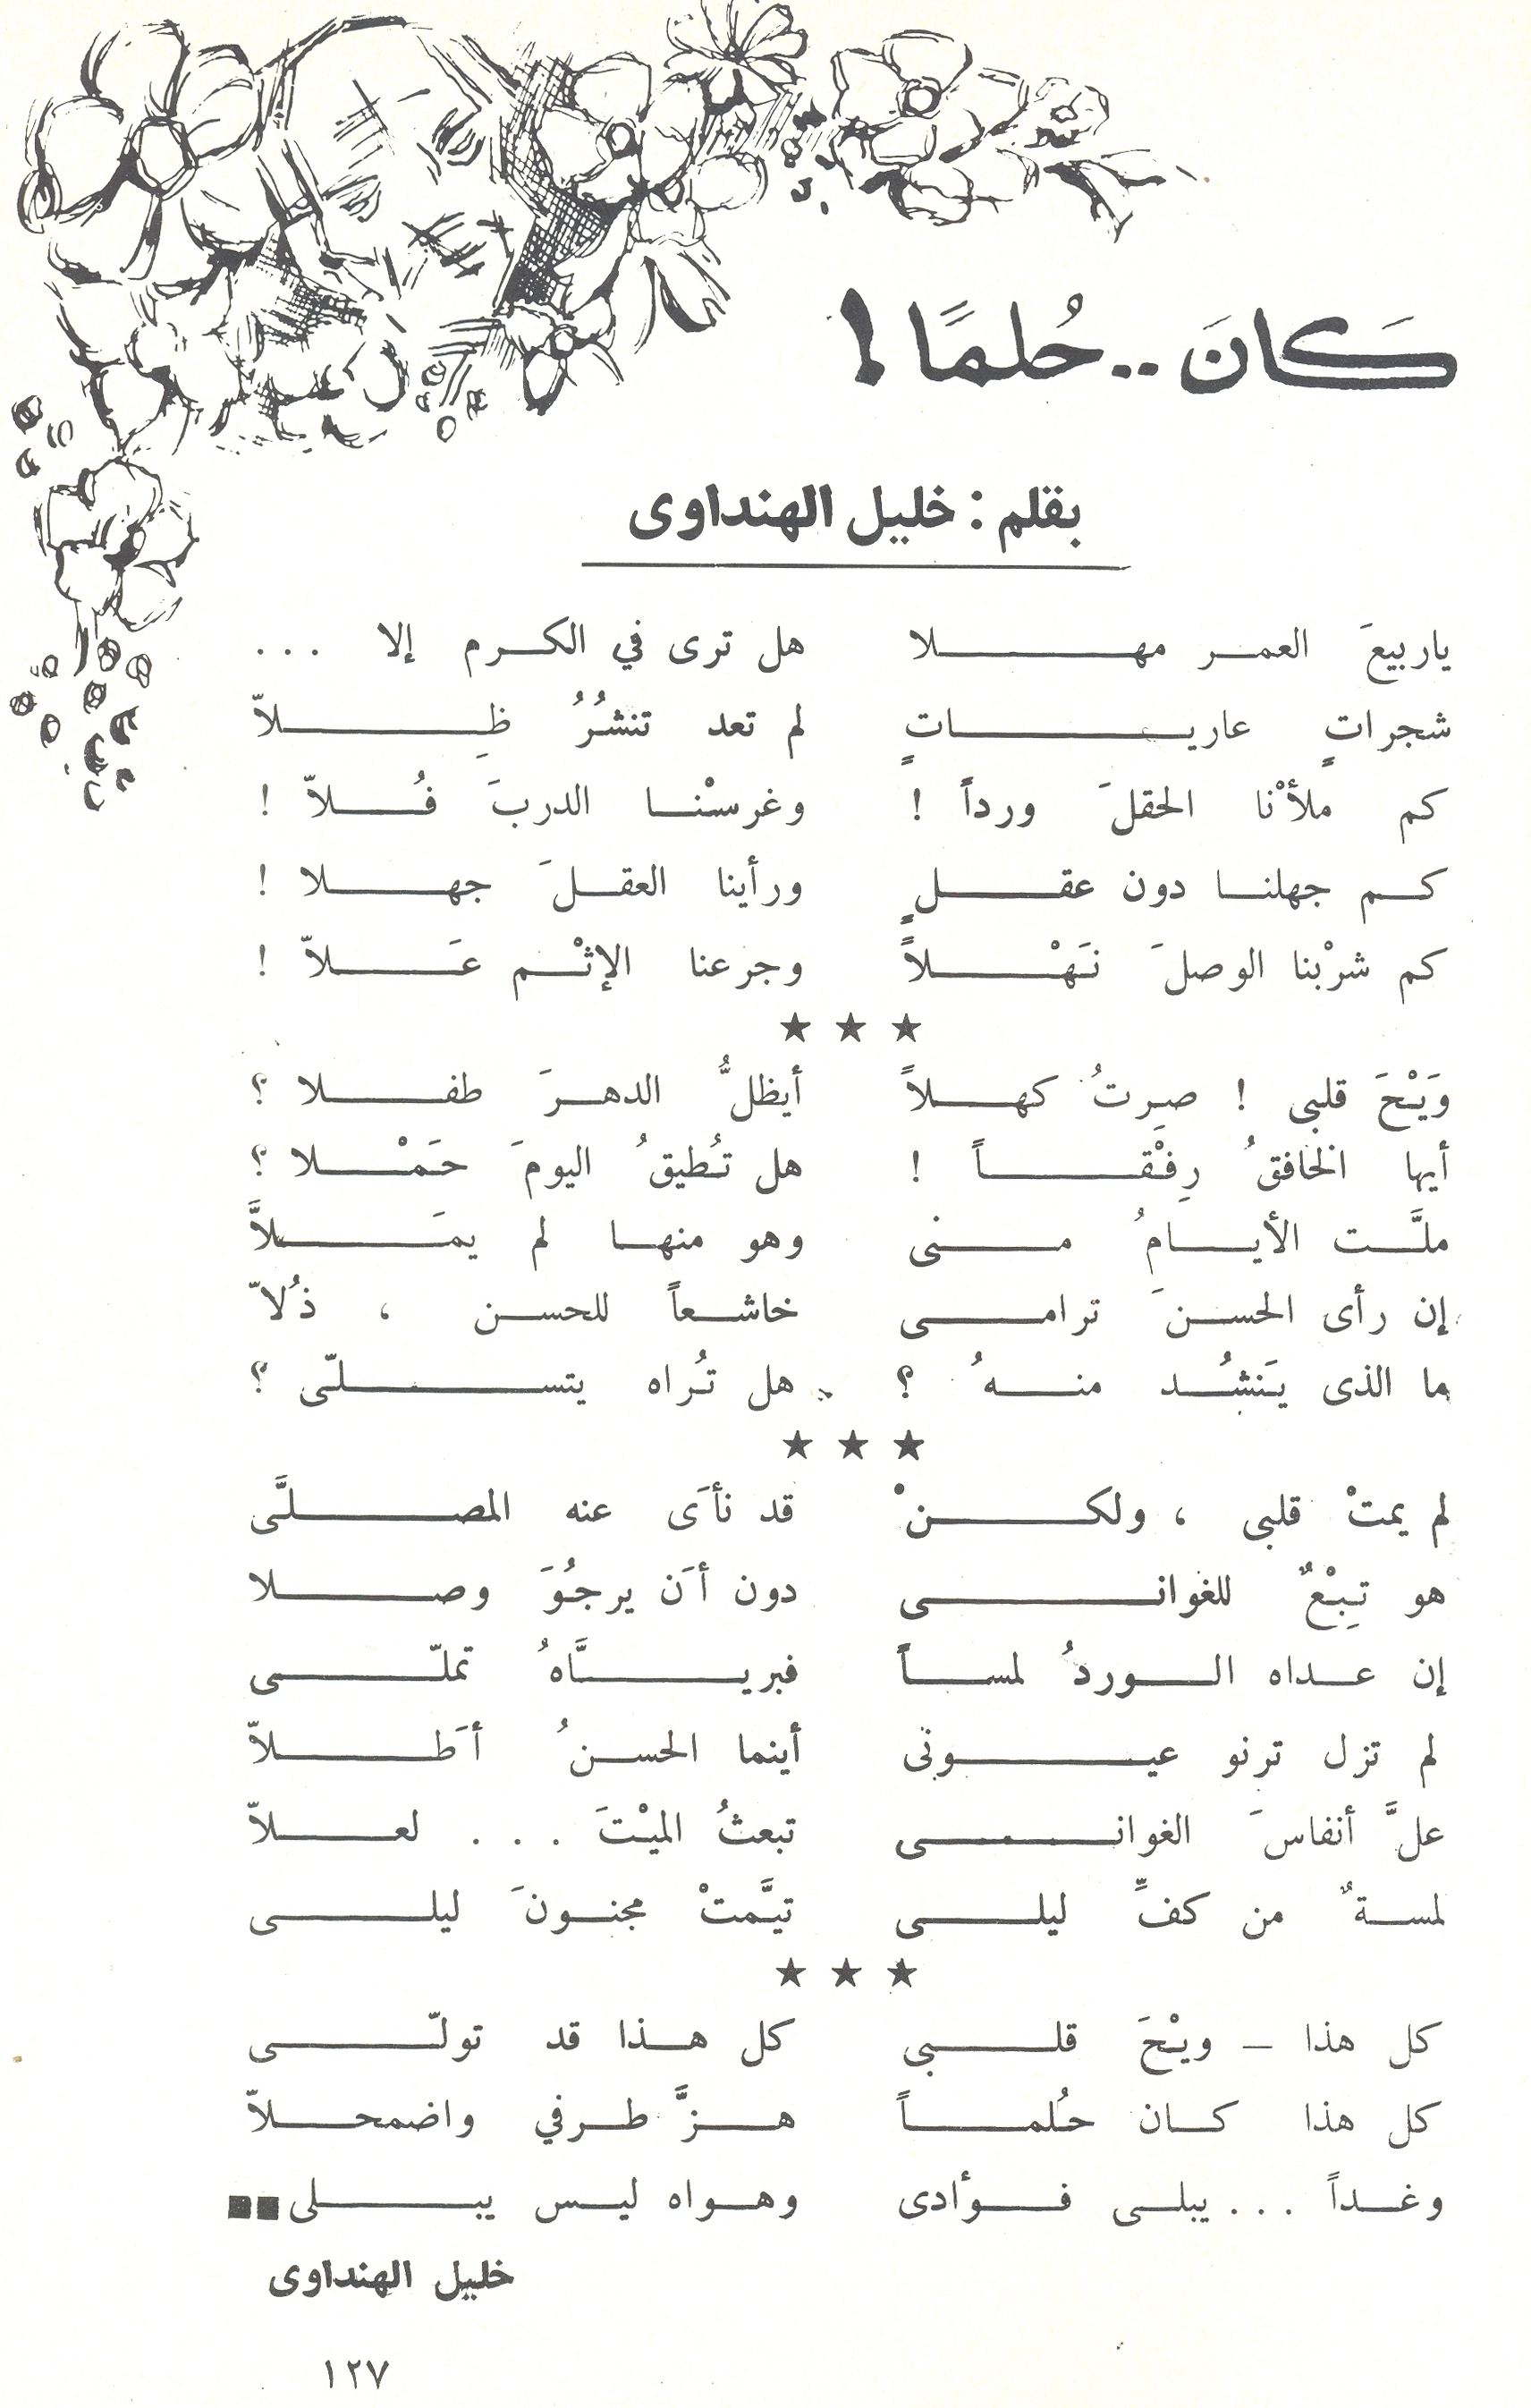 كَانَ .. حُلمًا !
بقلم : خليل الهنداوى
ياربيعَ العمر مهلا هل ترى في الكرم إلا ...
شجراتٍ عارياتٍ لم تعد تنشُرُ ظِلاّ
كم ملأْنا الحقلَ ورداً ! وغرسْنا الدربَ فُلاّ !
كم جهلنا دون عقلٍ ورأينا العقلَ جهلا !
كم شرْبنا الوصلَ نَهْلاً وجرعنا الإثْم عَلاّ !
★ ★ ★
وَيْحَ قلبى ! صِرتُ كهلاً أيظلُّ الدهرَ طفلا ؟
أيها الخافقُ رِفْقاً ! هل تُطيقُ اليومَ حَمْلا ؟
ملَّت الأيامُ منى وهو منها لم يمَلاَّ
إن رأى الحسنَ ترامى خاشعاً للحسن ، ذُلاّ
ما الذى يَنشُد منهُ ؟ هل تُراه يتسلّى ؟
★ ★ ★
لم يمتْ قلبى ، ولكنْ قد نأَى عنه المصلَّى
هو تِبْعٌ للغوانى دون أَن يرجُوَ وصلا
إن عداه الوردُ لمساً فبريَّاهُ تملّى
لم تزل ترنو عيونى أينما الحسنُ أَطلاّ
علَّ أنفاسَ الغوانى تبعثُ الميْتَ ... لعلاّ
لمسةٌ من كفِّ ليلى تيَّمتْ مجنونَ ليلى
★ ★ ★
كل هذا – ويْحَ قلبى كل هذا قد تولّى
كل هذا كان حُلماً هزَّ طرفي واضمحلاّ
وغداً ... يبلى فؤادى وهواه ليس يبلى
خليل الهنداوى
١٢٧